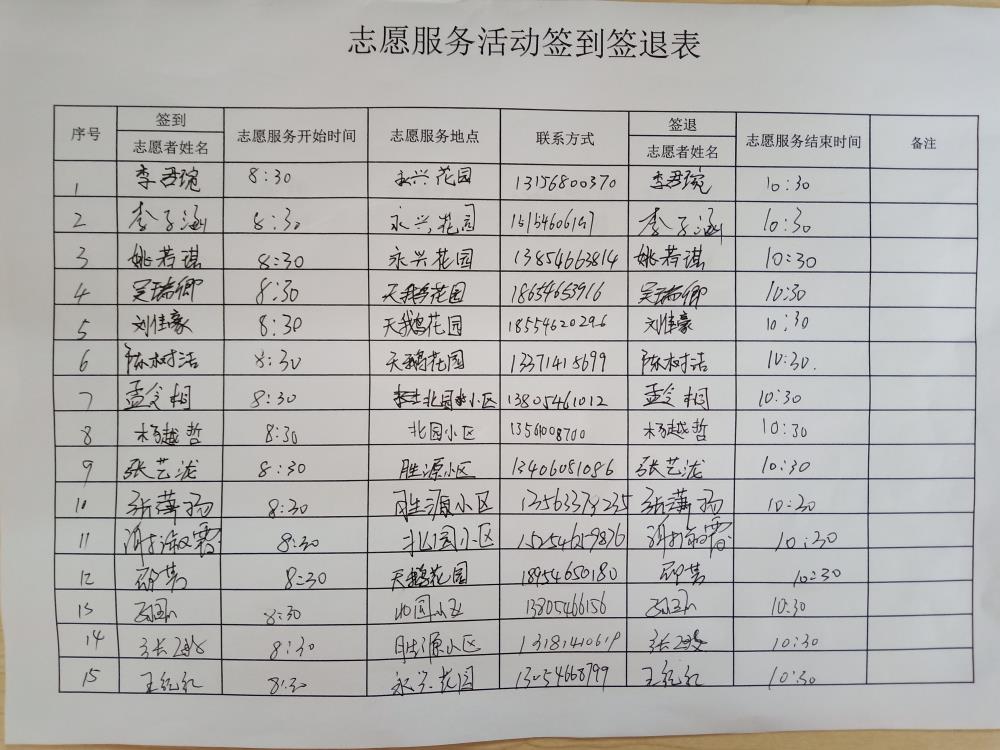 志愿服务活动签到签退表
序号 签到 志愿者姓名 志愿服务开始时间 志愿服务地点 联系方式 签退 志愿者姓名 志愿服务结束时间 备注
1 李君琬 8:30 永兴花园 13156800370 李君琬 10:30
2 李子涵 8:30 永兴花园 李子涵 10:30
3 姚若琪 8:30 永兴花园 13854663814 姚若琪 10:30
4 吴瑞卿 8:30 天鹅花园 18654653916 吴瑞卿 10:30
5 刘佳豪 8:30 天鹅花园 18554620296 刘佳豪 10:30
6 陈树洁 8:30 天鹅花园 13371415699 陈树洁 10:30.
7 孟令桐 8:30 北园小区 13805461012 孟令桐 10:30
8 杨越哲 8:30 北园小区 13561008700 杨越哲 10:30
9 张艺泷 8:30 胜源小区 13406081086 张艺泷 10:30
10 8:30 胜源小区 10:30
11 8:30 北园小区 15254659876 10:30
12 8:30 天鹅花园 18954650180 10:30
13 8:30 北园小区 13805466156 10:30
14 8:30 胜源小区 13181410619 10:30
15 王红红 8:30 永兴花园 13054668799 王红红 10:30